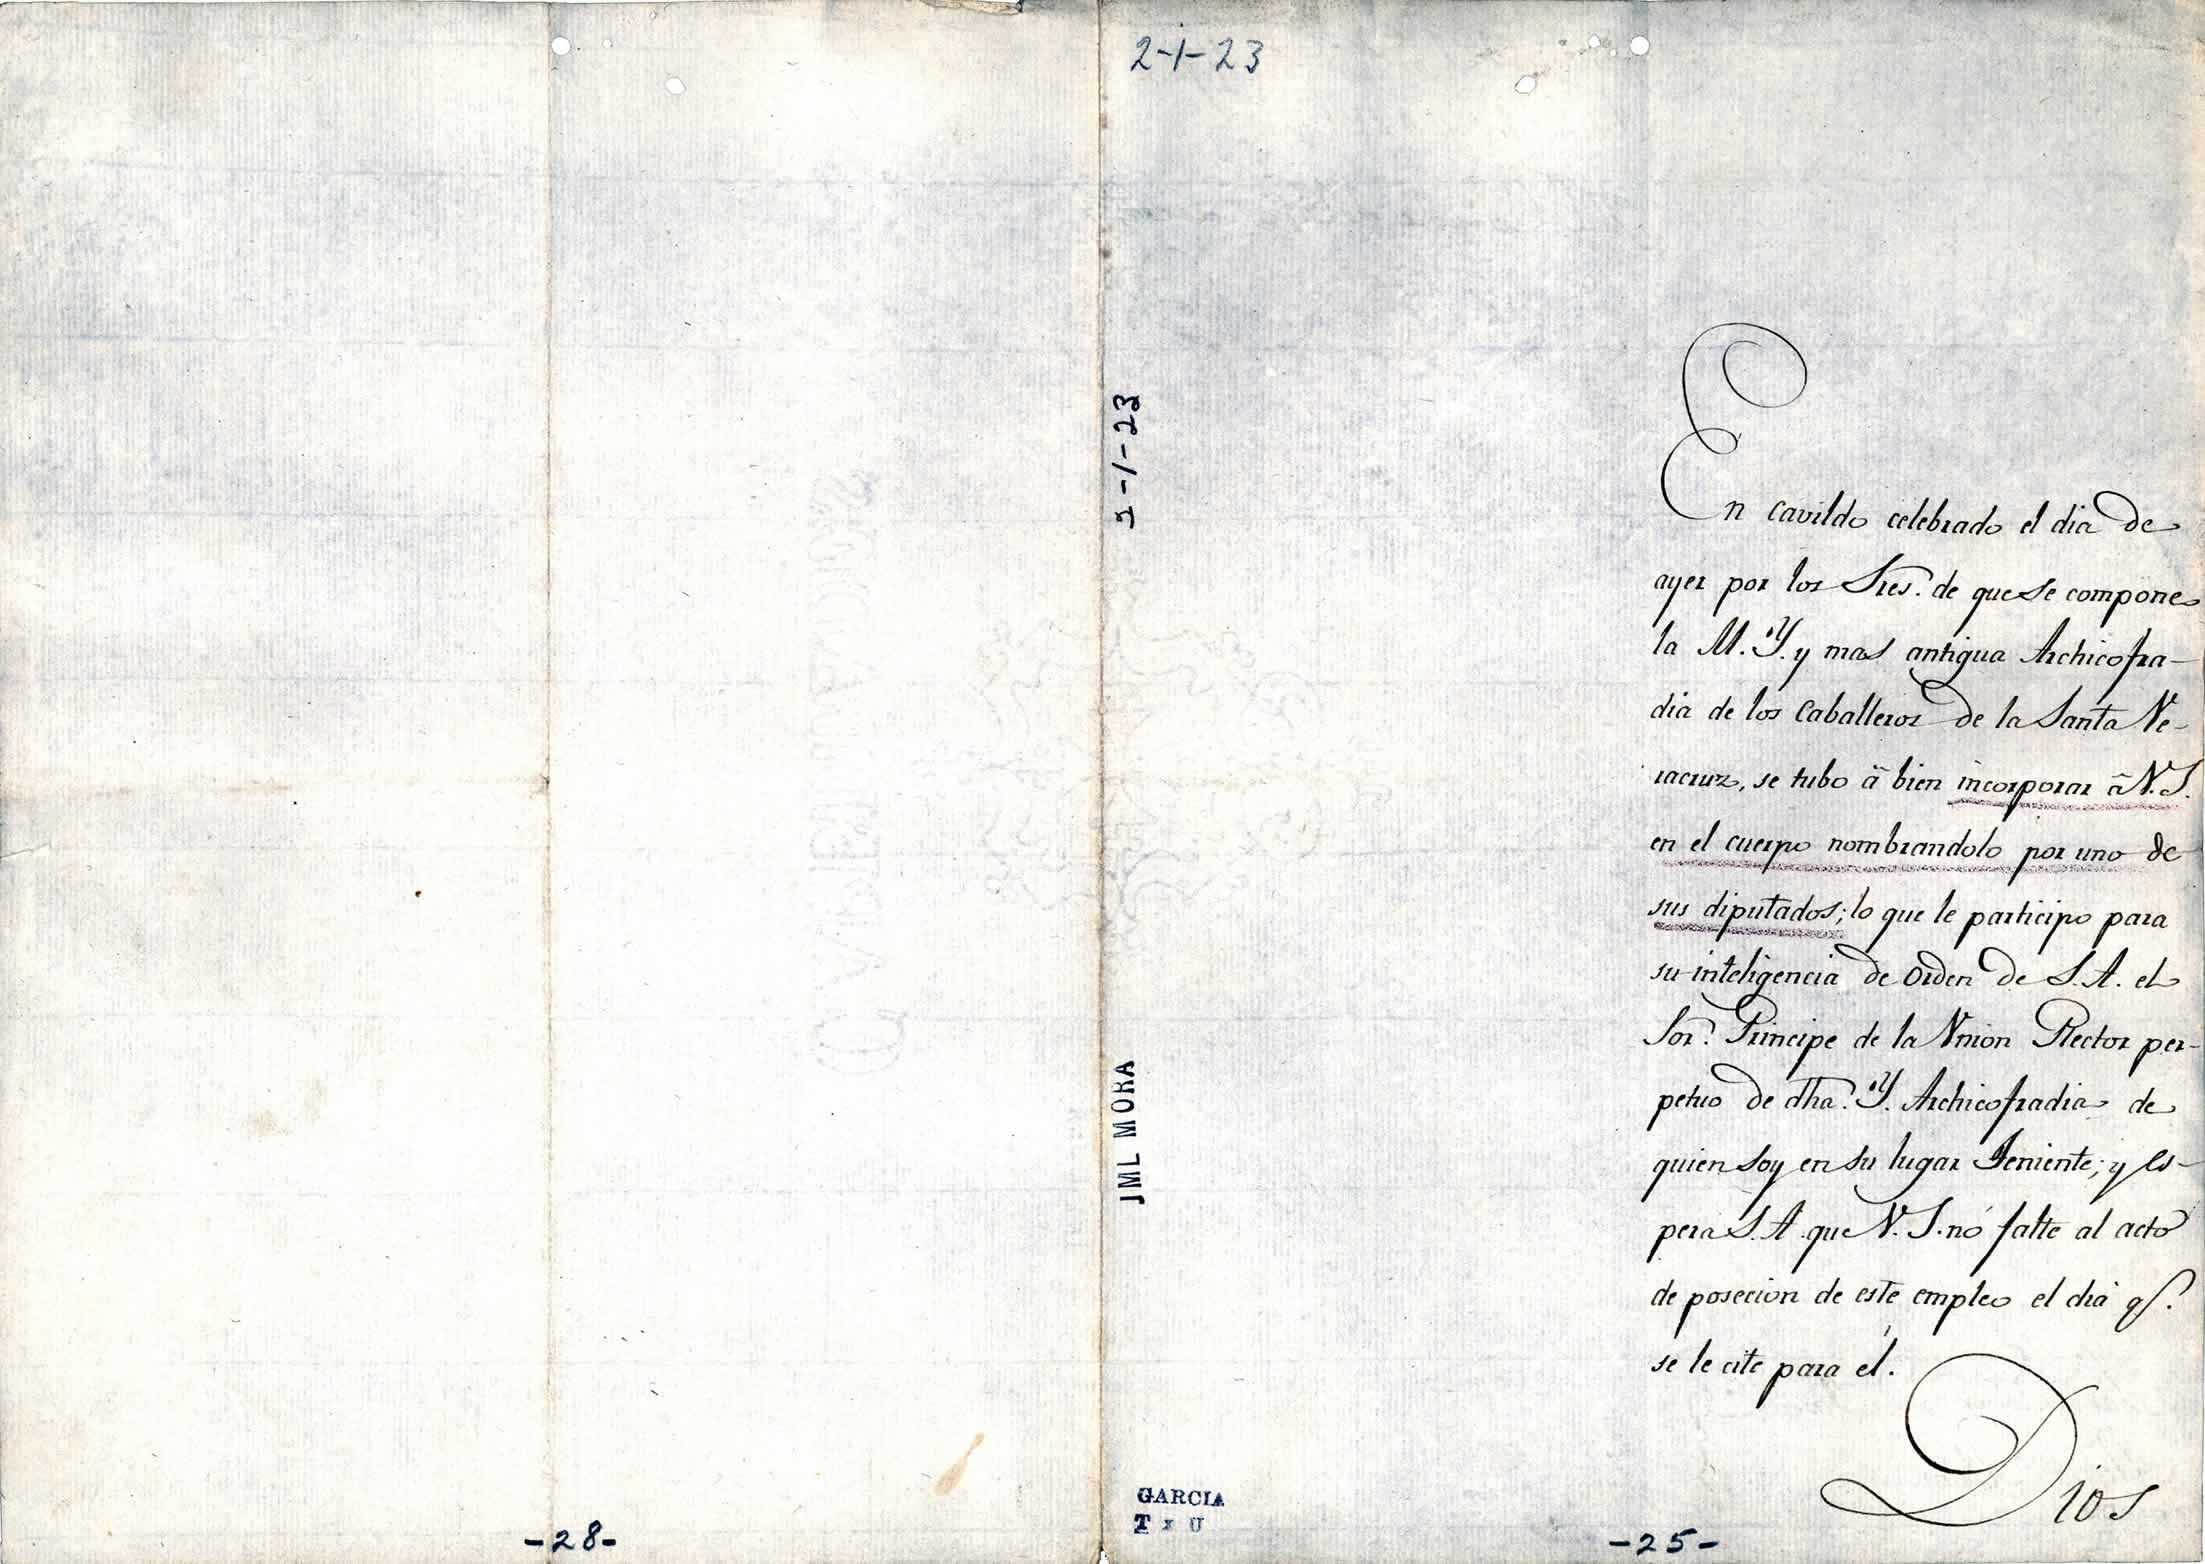 2-1-23
2-1-23
En cavildo celebrado el dia de
ayer por los Sres. de que se compone
la M. Y. y mas antigua Archicofra-
dia de los Caballeros de la Santa Ve-
racruz, se tubo â bien incorporar â V.S.
en el cuerpo nombrandolo por uno de
sus diputados; lo que le participo para
su inteligencia de orden de S.A. el
Sor. Principe de la Vnion Rector per-
petuo de dha. Y. Archicofradia de
quien soy en su lugar Teniente; y es-
pera S.A. que V.S. nó falte al acto
de posecion de este empleo el dia q.
se le cite para él.
Dios
JML MORA
GARCIA
T x U
-28-
-25-